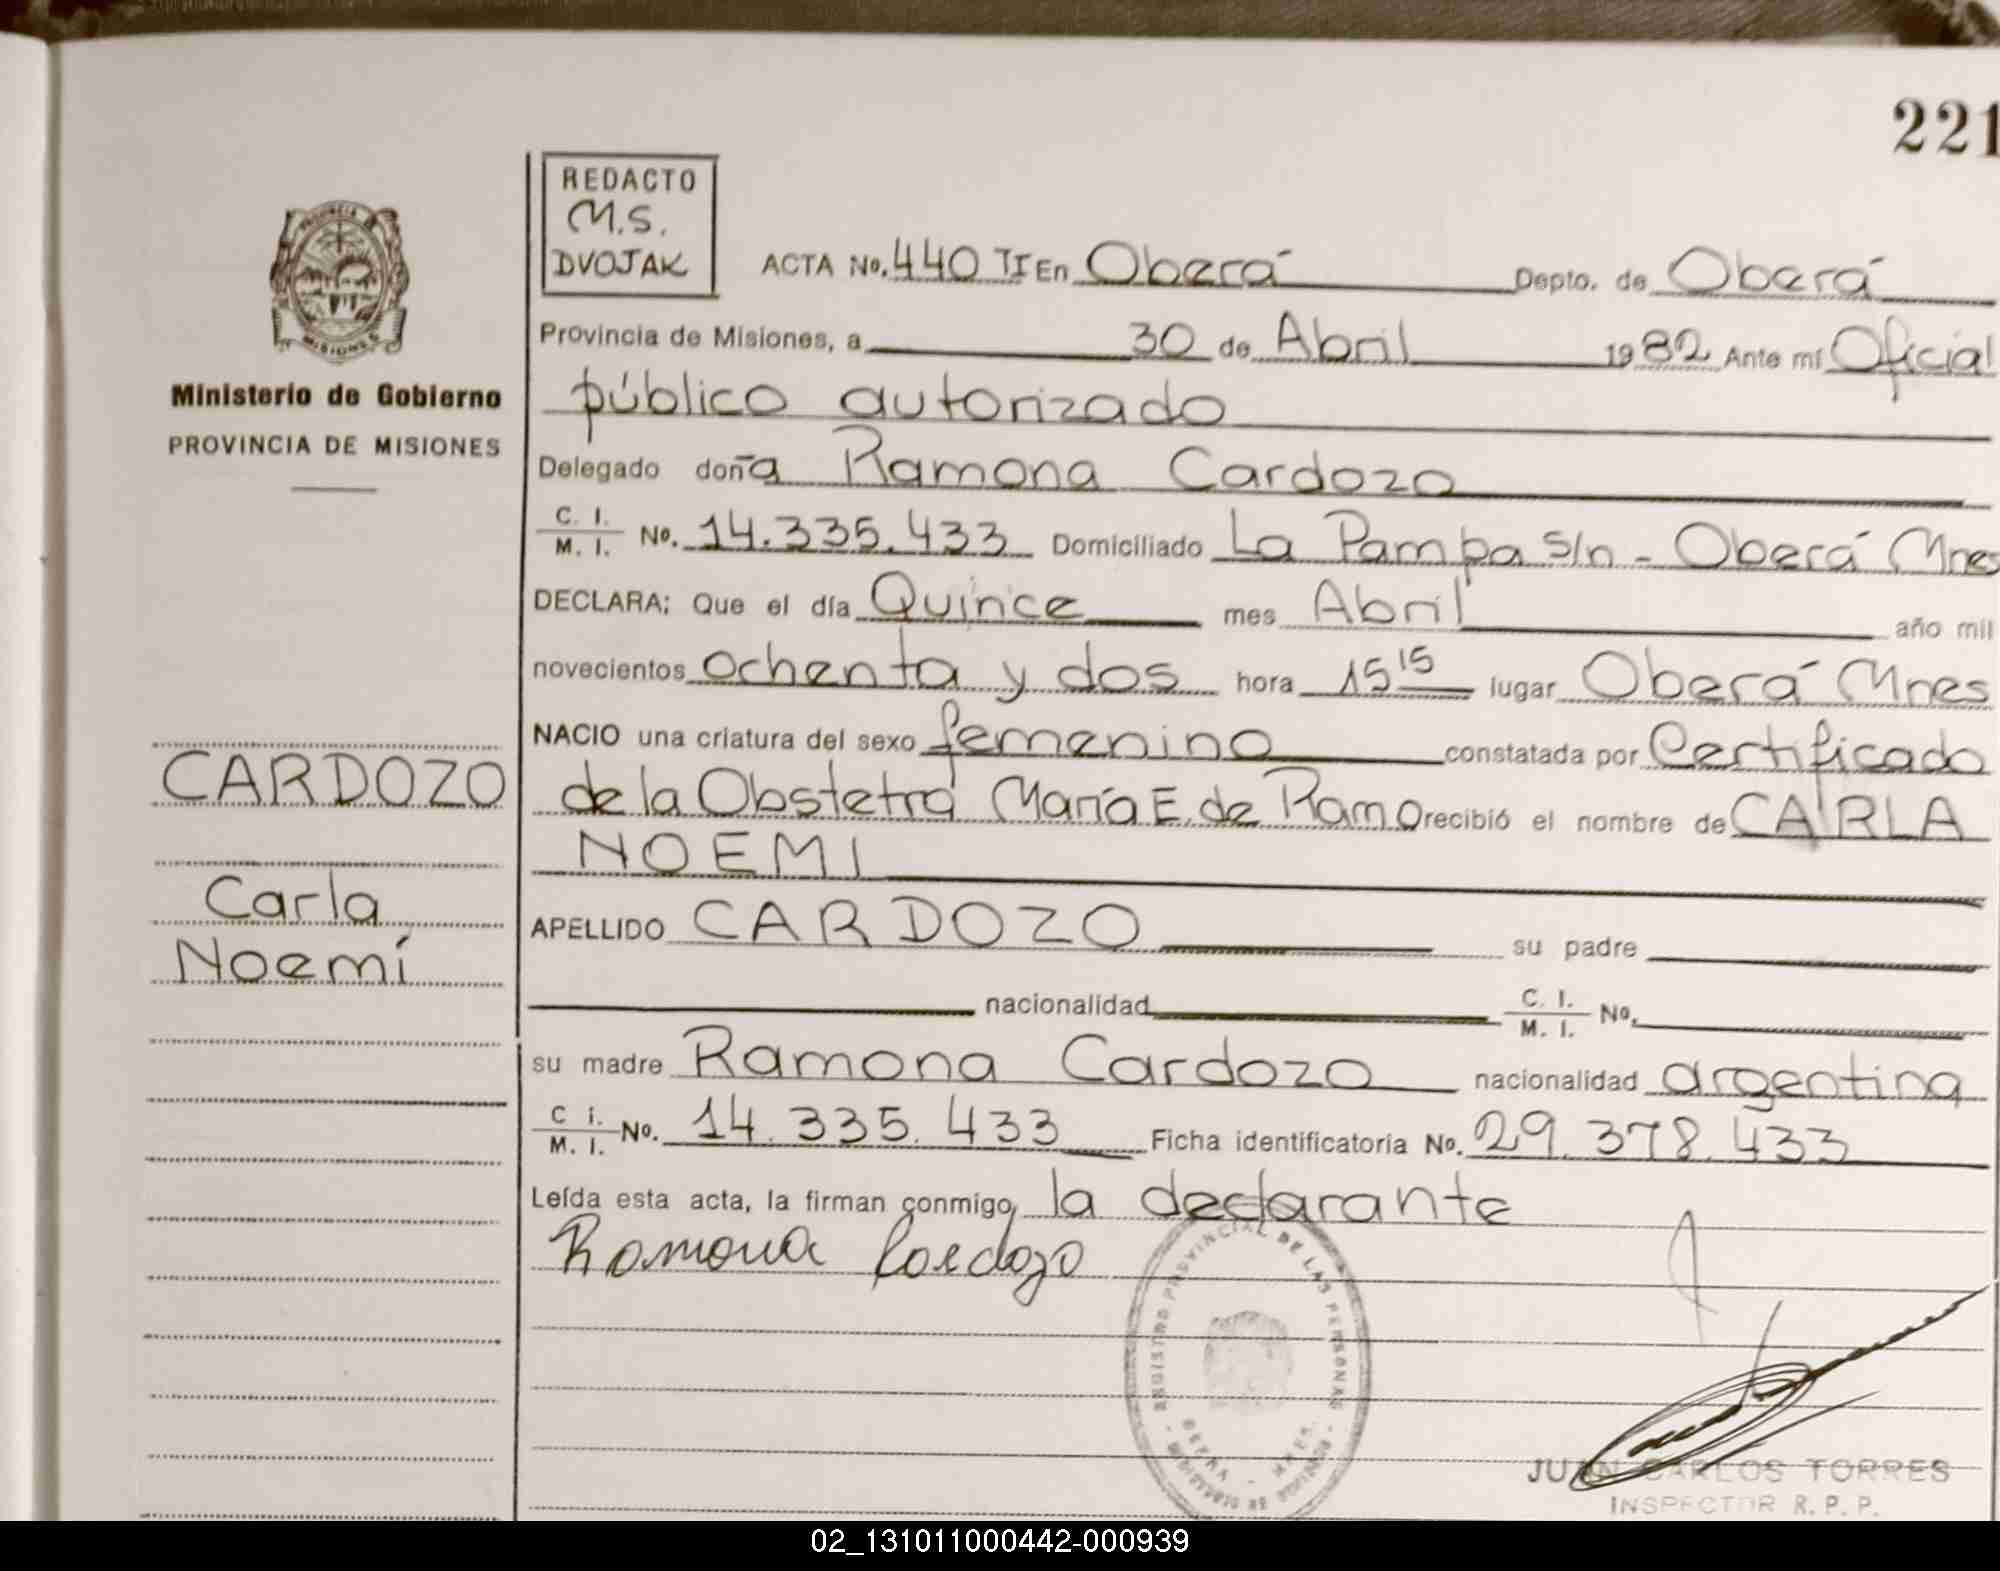 221
REDACTO
M.S.
DVOJAK
ACTA No. 440 TI En Oberá Depto. de Oberá
Provincia de Misiones, a 30 de Abril 1982 Ante mí Oficial
público autorizado
Delegado doña Ramona Cardozo
C. I.
M. I. No. 14.335.433 Domiciliado La Pampa S/n - Oberá Mnes
DECLARA; Que el día Quince mes Abril año mil
novecientos ochenta y dos hora 15 15 lugar Oberá Mnes
NACIO una criatura del sexo femenino constatada por Certificado
de la Obstetra María E. de Ramo recibió el nombre de CARLA
NOEMI
APELLIDO CARDOZO su padre
nacionalidad C. I.
M. I. No.
su madre Ramona Cardozo nacionalidad argentina
C i.
M. I. No. 14.335.433 Ficha identificatoria No. 29.378.433
Leída esta acta, la firman conmigo, la declarante
Ramona Cardozo
PROVINCIA
MISIONES
Ministerio de Gobierno
PROVINCIA DE MISIONES
CARDOZO
Carla
Noemí
REGISTRO PROVINCIAL DE LAS PERSONAS
JUAN CARLOS TORRES
INSPECTOR R. P. P.
02_131011000442-000939